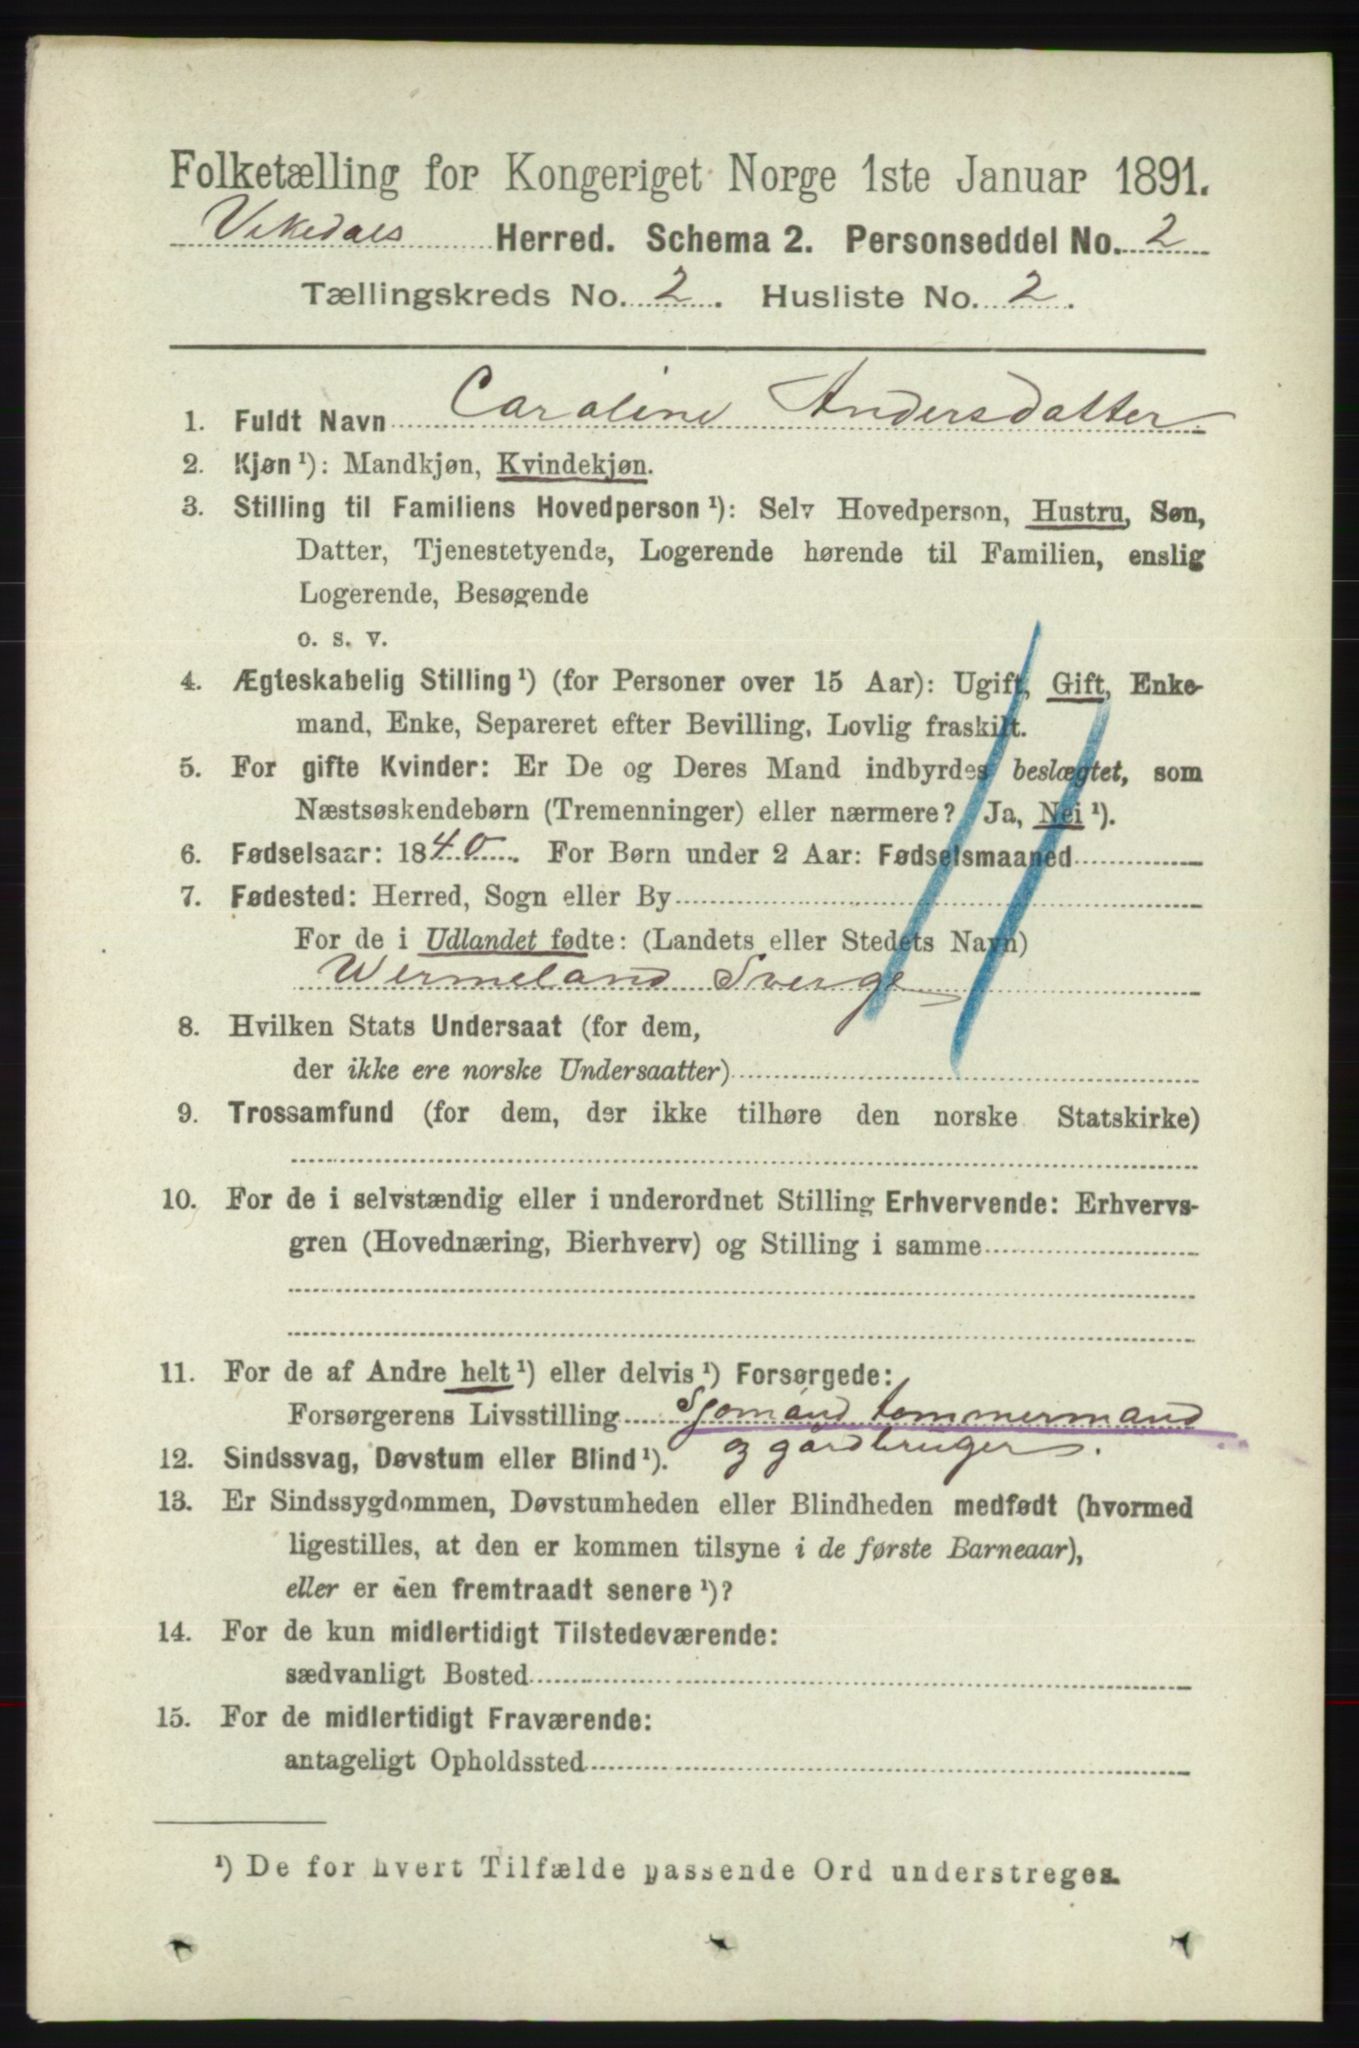 Folketælling for Kongeriget Norge 1ste Januar 1891.
Vikedals Herred. Schema 2. Personseddel No. 2
Tællingskreds No. 2. Husliste No. 2.
1. Fuldt Navn Caroline Andersdatter
2. Kjøn¹): Mandkjøn, Kvindekjøn.
3. Stilling til Familiens Hovedperson¹): Selv Hovedperson, Hustru, Søn,
Datter, Tjenestetyende, Logerende hørende til Familien, enslig
Logerende, Besøgende
o. s. v.
4. Ægteskabelig Stilling¹) (for Personer over 15 Aar): Ugift, Gift, Enke-
mand, Enke, Separeret efter Bevilling, Lovlig fraskilt.
5. For gifte Kvinder: Er De og Deres Mand indbyrdes beslægtet, som
Næstsøskendebørn (Tremenninger) eller nærmere? Ja, Nei¹).
6. Fødselsaar: 1840. For Børn under 2 Aar: Fødselsmaaned
7. Fødested: Herred, Sogn eller By
For de i Udlandet fødte: (Landets eller Stedets Navn)
Wermeland Sverge
8. Hvilken Stats Undersaat (for dem,
der ikke ere norske Undersaatter)
9. Trossamfund (for dem, der ikke tilhøre den norske Statskirke)
10. For de i selvstændig eller i underordnet Stilling Erhvervende: Erhvervs-
gren (Hovednæring, Bierhverv) og Stilling i samme
11. For de af Andre helt¹) eller delvis¹) Forsørgede:
Forsørgerens Livsstilling Sjømand tømmermand
og gårdbruger.
12. Sindssvag, Døvstum eller Blind¹).
13. Er Sindssygdommen, Døvstumheden eller Blindheden medfødt (hvormed
ligestilles, at den er kommen tilsyne i de første Barneaar),
eller er den fremtraadt senere¹)?
14. For de kun midlertidigt Tilstedeværende:
sædvanligt Bosted
15. For de midlertidigt Fraværende:
antageligt Opholdssted
¹) De for hvert Tilfælde passende Ord understreges.